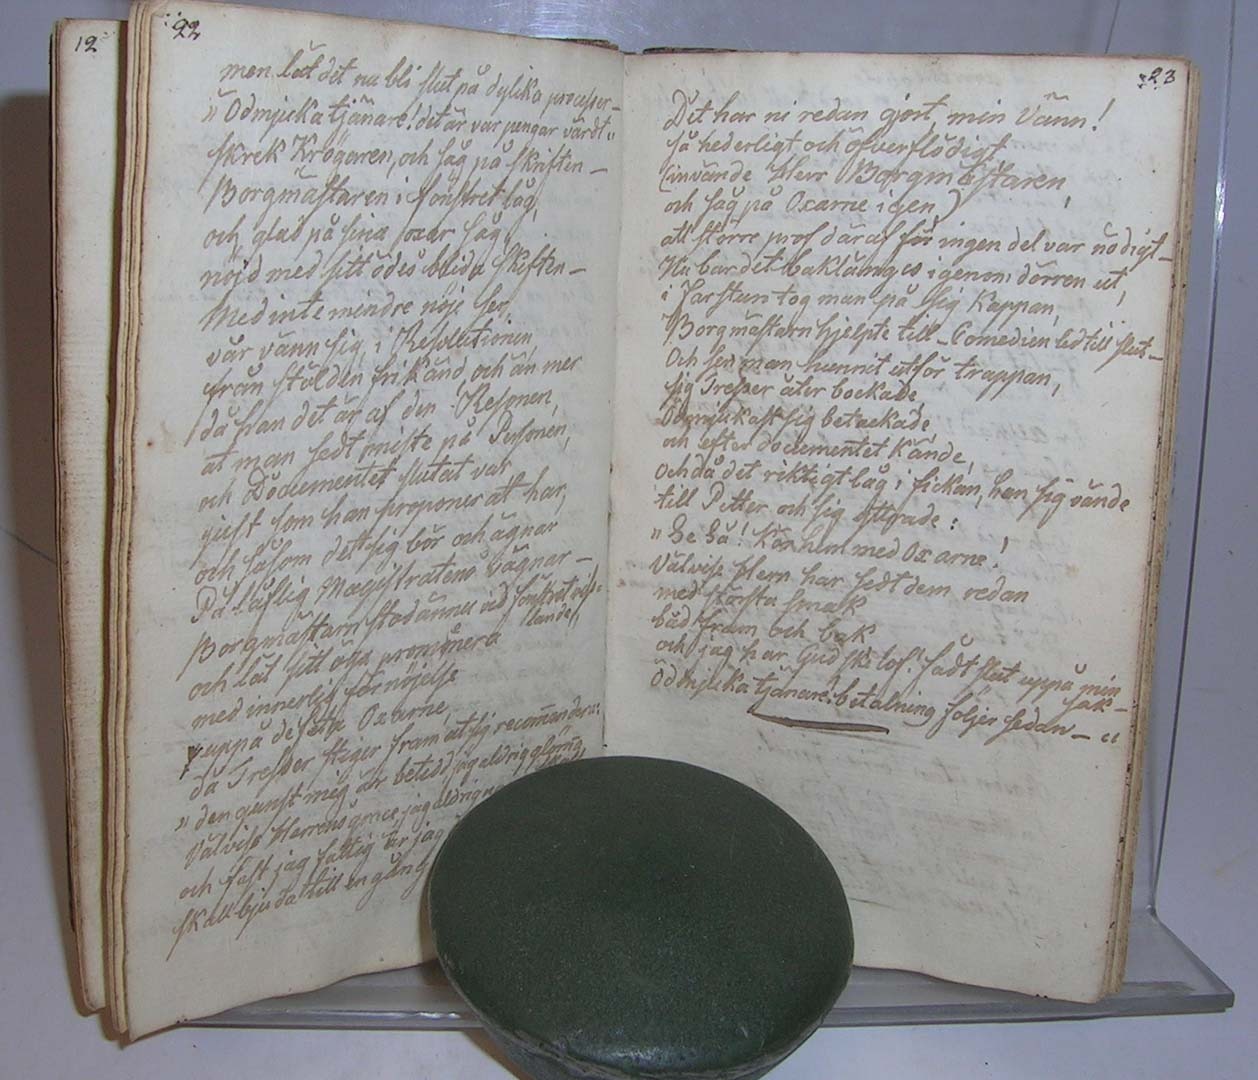 12
22
men låt det nu bli slut på dylika processer_
"Ödmjuka tjänare! det är var pengar värdt"
skrek Krögaren, och såg på skriften_
Borgmästaren i fönstret låg,
och glad på sina oxar såg,
nöjd med sitt ödes blida skiften_
Med inte mindre nöje ser,
vår vänn sig i Resolutionen,
från stölden frikänd och än mer
då han det är af den Resonen,
at man sedt miste på Personen,
och Documentet slutat var
just som han proponerat har,
och såsom det sig bör och ägnar
På Låflig Magistratens vägnar_
Borgmästarn stod ännu vid fönstret viss-
lande,
och lät sitt öga promenera
med innerlig förnöjelse
uppå de feta Oxarne,
då Tresser stiger fram at sig recommendera:
"den gunst mig är betedd jag aldrig glömma
Välvise Herrens ynnest jag aldrig
och fast jag fattig är jag
skall bjuda till en gång
23
Det har ni redan gjort, min Vänn!
så hederligt och öfverflödigt
(invände Herr Borgmästaren,
och såg på Oxarne igen)
att större prof däraf för ingen del var nödigt_
Nu bar det baklänges igenom dörren ut,
i Farstun tog man på sig Kappan,
Borgmästarn hjelpte till_ Comedien led till slut_
Och sen man hunnit utför trappan,
sig Tresser åter bockade
Ödmjukast sig betackade,
och efter documentet kände,
och då det riktigt låg i fickan, han sig vände
till Petter och sig yttrade:
"Se Så! Kör hem med Oxarne!
Välvise Herrn har sedt dem redan
med största smak
båd' fram och bak
och jag har Gud ske lof! fådt slut uppå min
sak_
Ödmjuka tjänare! betalning följer sedan_"